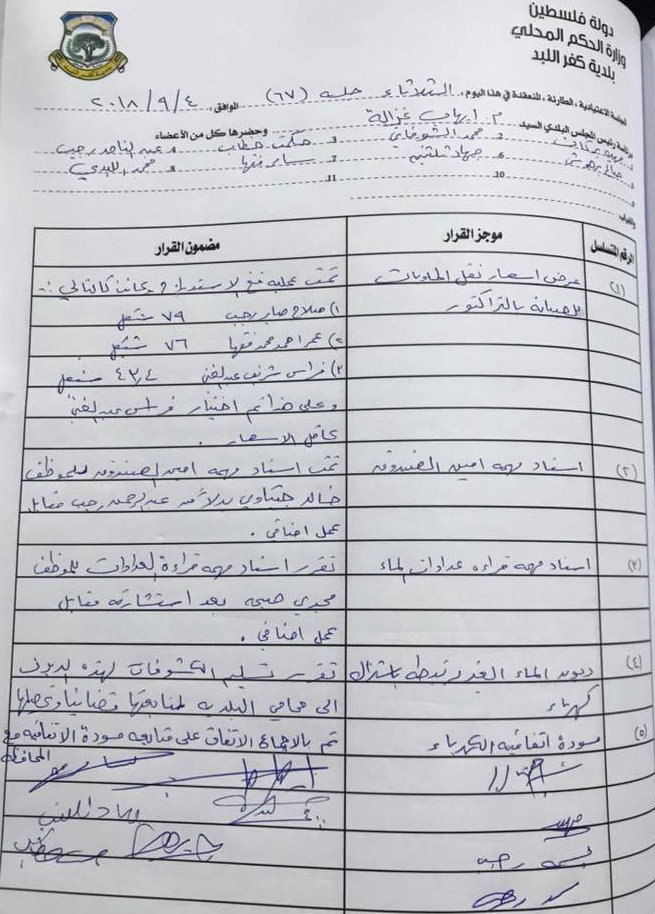 دولة فلسطين
وزارة الحكم المحلي
بلدية كفر اللبد
الجلسة الاعتيادية ، الطارئة ، المنعقدة في هذا اليوم : الثلاثاء جلسة (٦٧) الموافق : ٢٠١٨/٩/٤
برئاسة رئيس المجلس البلدي السيد م. ايهاب غزالة وحضرها كل من الأعضاء
2. محمد الشوفاني 3. حكمت حطاب 4. عبد الناصر رجب
6. جهاد 7. سائد فقها 8. محمد اللبدي
9 10. 11.
والغياب
الرقم المتسلسل موجز القرار مضمون القرار
(١) عرض اسعار نقل الحاويات تمت عملية فتح الاستدراج وكانت كالتالي :-
للصيانة بالتراكتور ١) صلاح صابر رجب ٧٩ شيكل
٢) عمر احمد محمد فقها ٧٦ شيكل
٣) فراس شريف عبد الغني ٤٣,٤ شيكل
وعلى هذا تم اختيار فراس عبد الغني
كأقل الاسعار .
(٢) اسناد مهمة امين الصندوق تمت اسناد مهمة امين الصندوق للموظف
خالد جيتاوي بدلا من عبد الرحمن رجب مقابل
عمل اضافي .
(٣) اسناد مهمة قراءة عدادات الماء تقرر اسناد مهمة قراءة العدادات للموظف
مجدي بعد استشارته مقابل
عمل اضافي .
(٤) ديون الماء الغير مرتبطة باشتراك تقرر تسليم الكشوفات لهذه الديون
كهرباء الى محامي البلدية لمتابعتها قضائيا وتحصيلها
(٥) مسودة اتفاقية الكهرباء تم بالاجماع الاتفاق على متابعة مسودة الاتفاقية مع
المحافظة